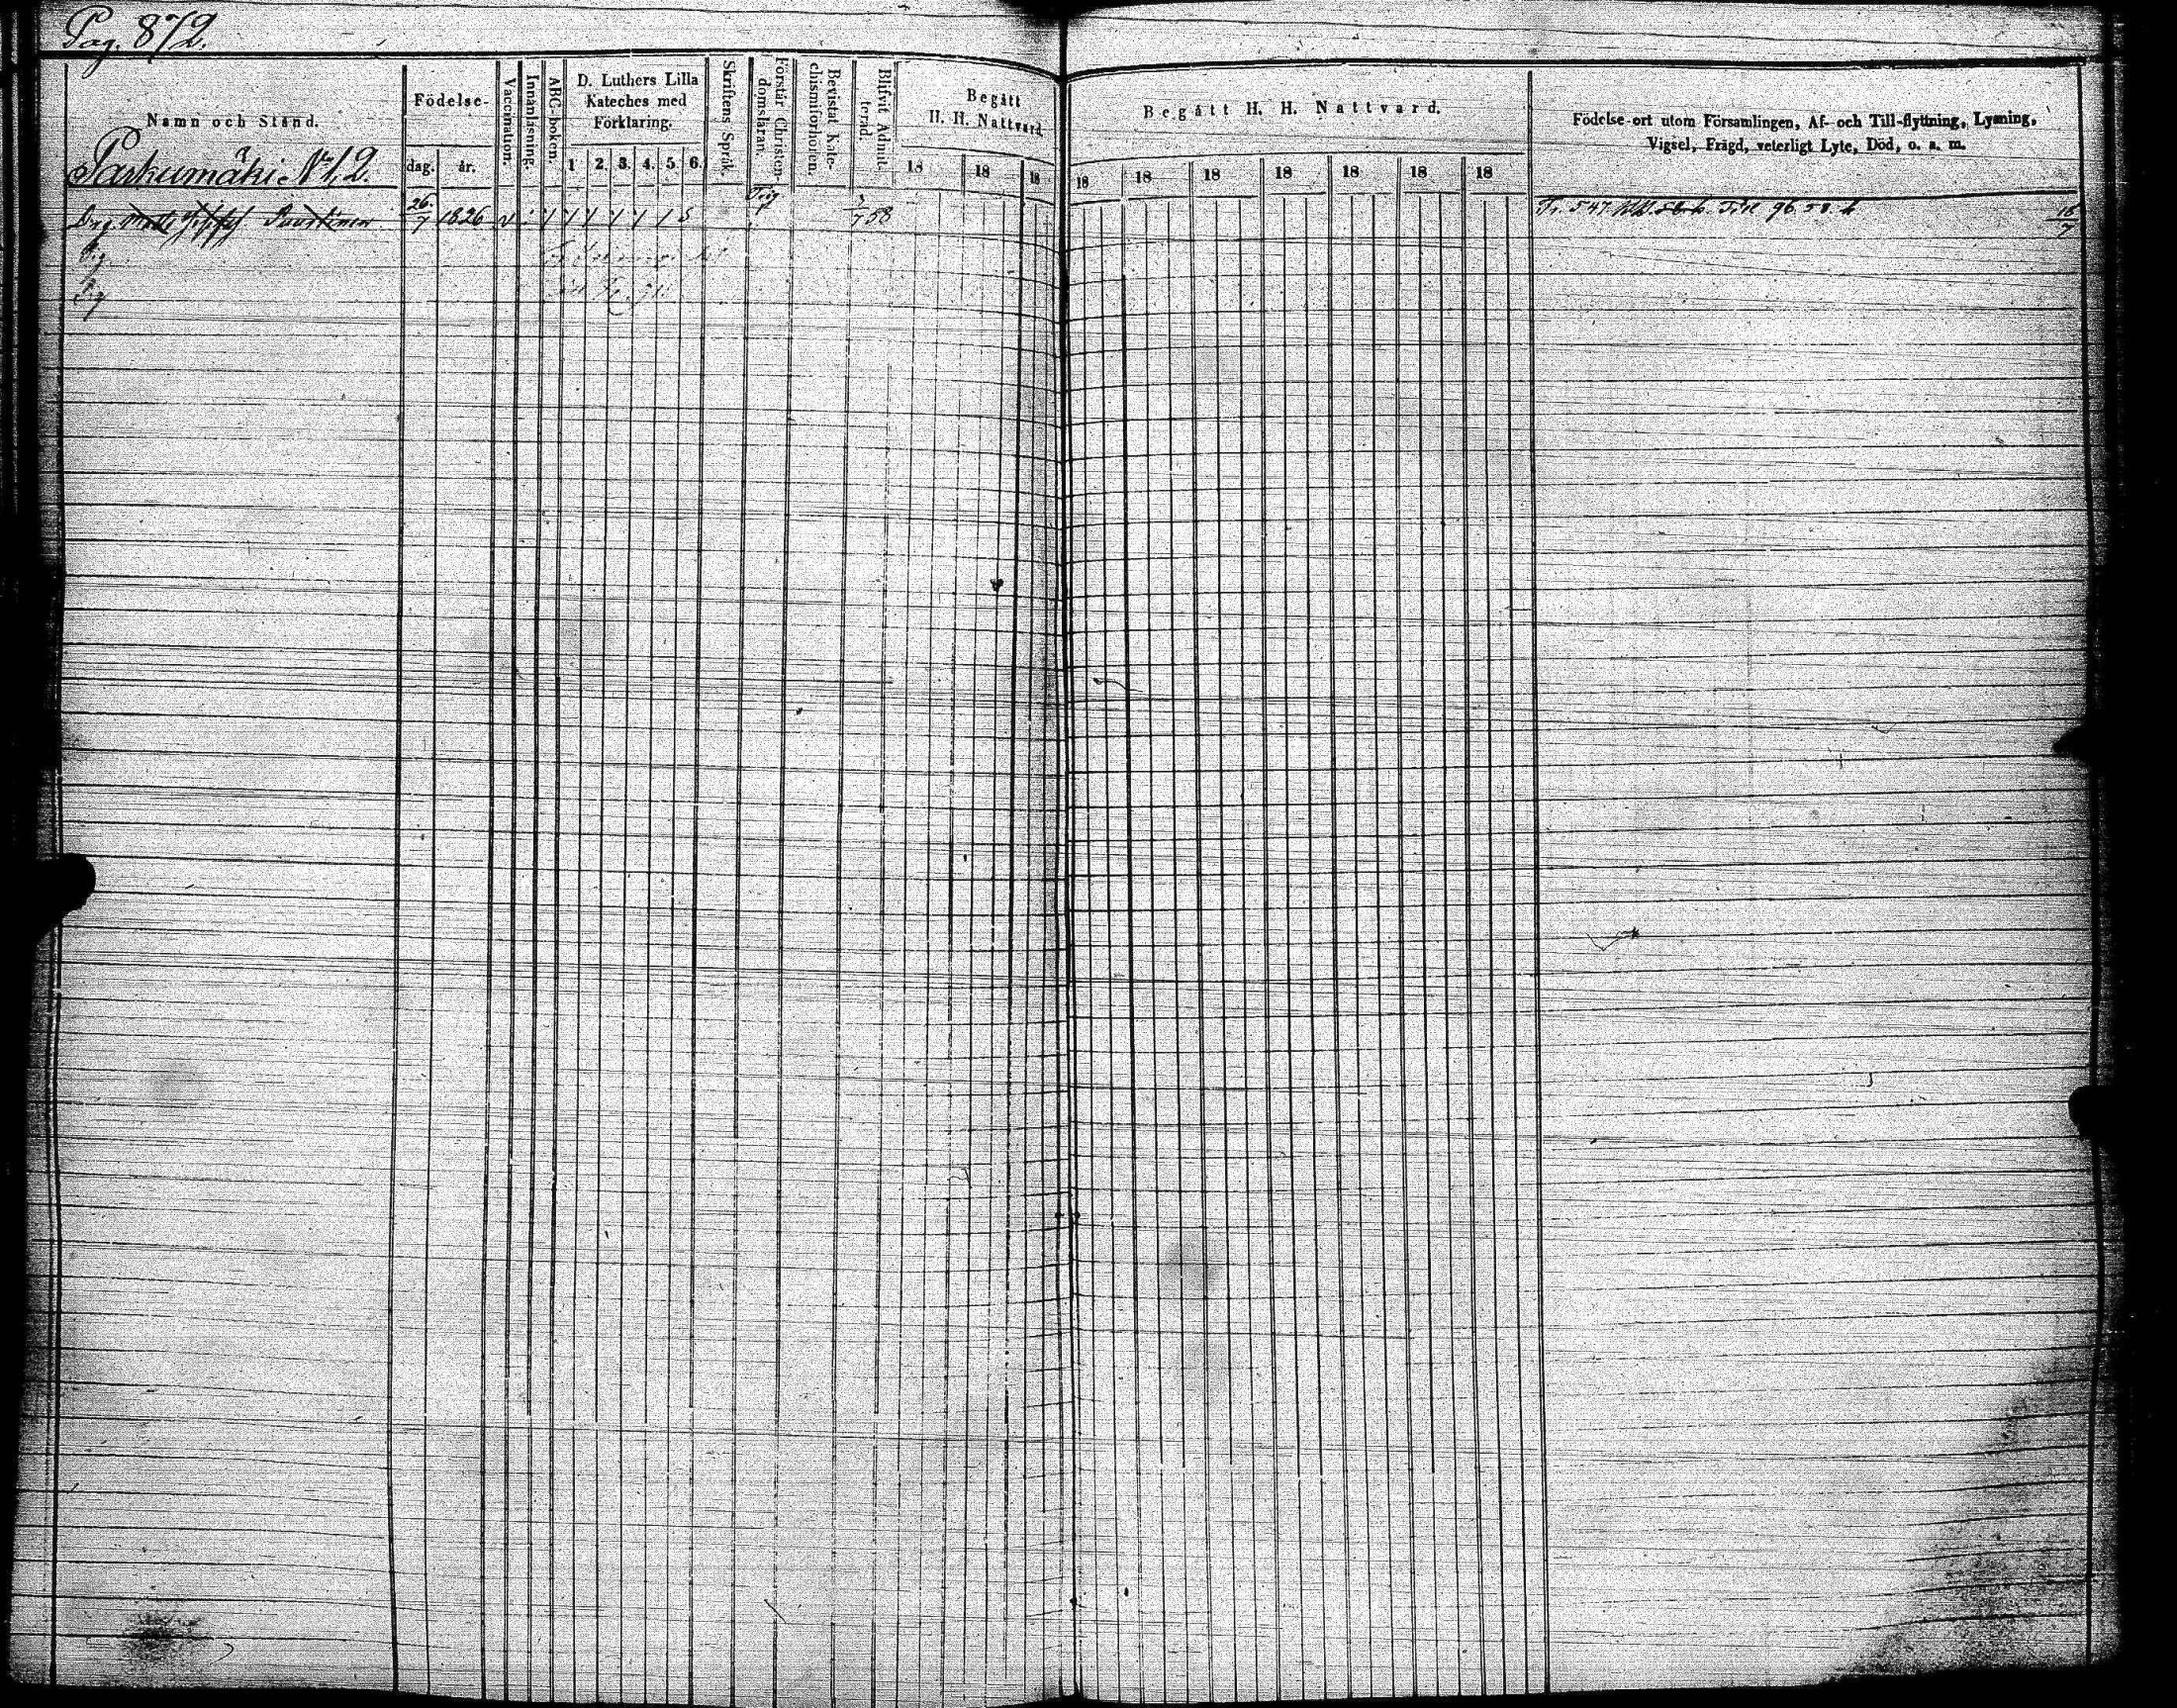 Pag. 872.
Namn och Stånd.
Födelse-
dag.
år.
Vaccination.
Innanläsning.
ABC-boken.
D. Luthers Lilla
Kateches med
Förklaring.
1 2. 3. 4. 5. 6.
Skriftens Språk.
Förstår Christen-
domsläran.
Bevistat Kate-
chismiförhören.
Blifvit Admit-
terad.
Begått
H. H. Nattvard.
18 18 18
Begått H. H. Nattvard.
18 18 18 18 18 18 18
Födelse-ort utom Församlingen, Af- och Till-flyttning, Lysning,
Vigsel, Frägd, veterligt Lyte, Död, o. s. m.
Parkumäki N 12.
Drg. Matts 26/7 1826 58
Fr. 547 96. 58.